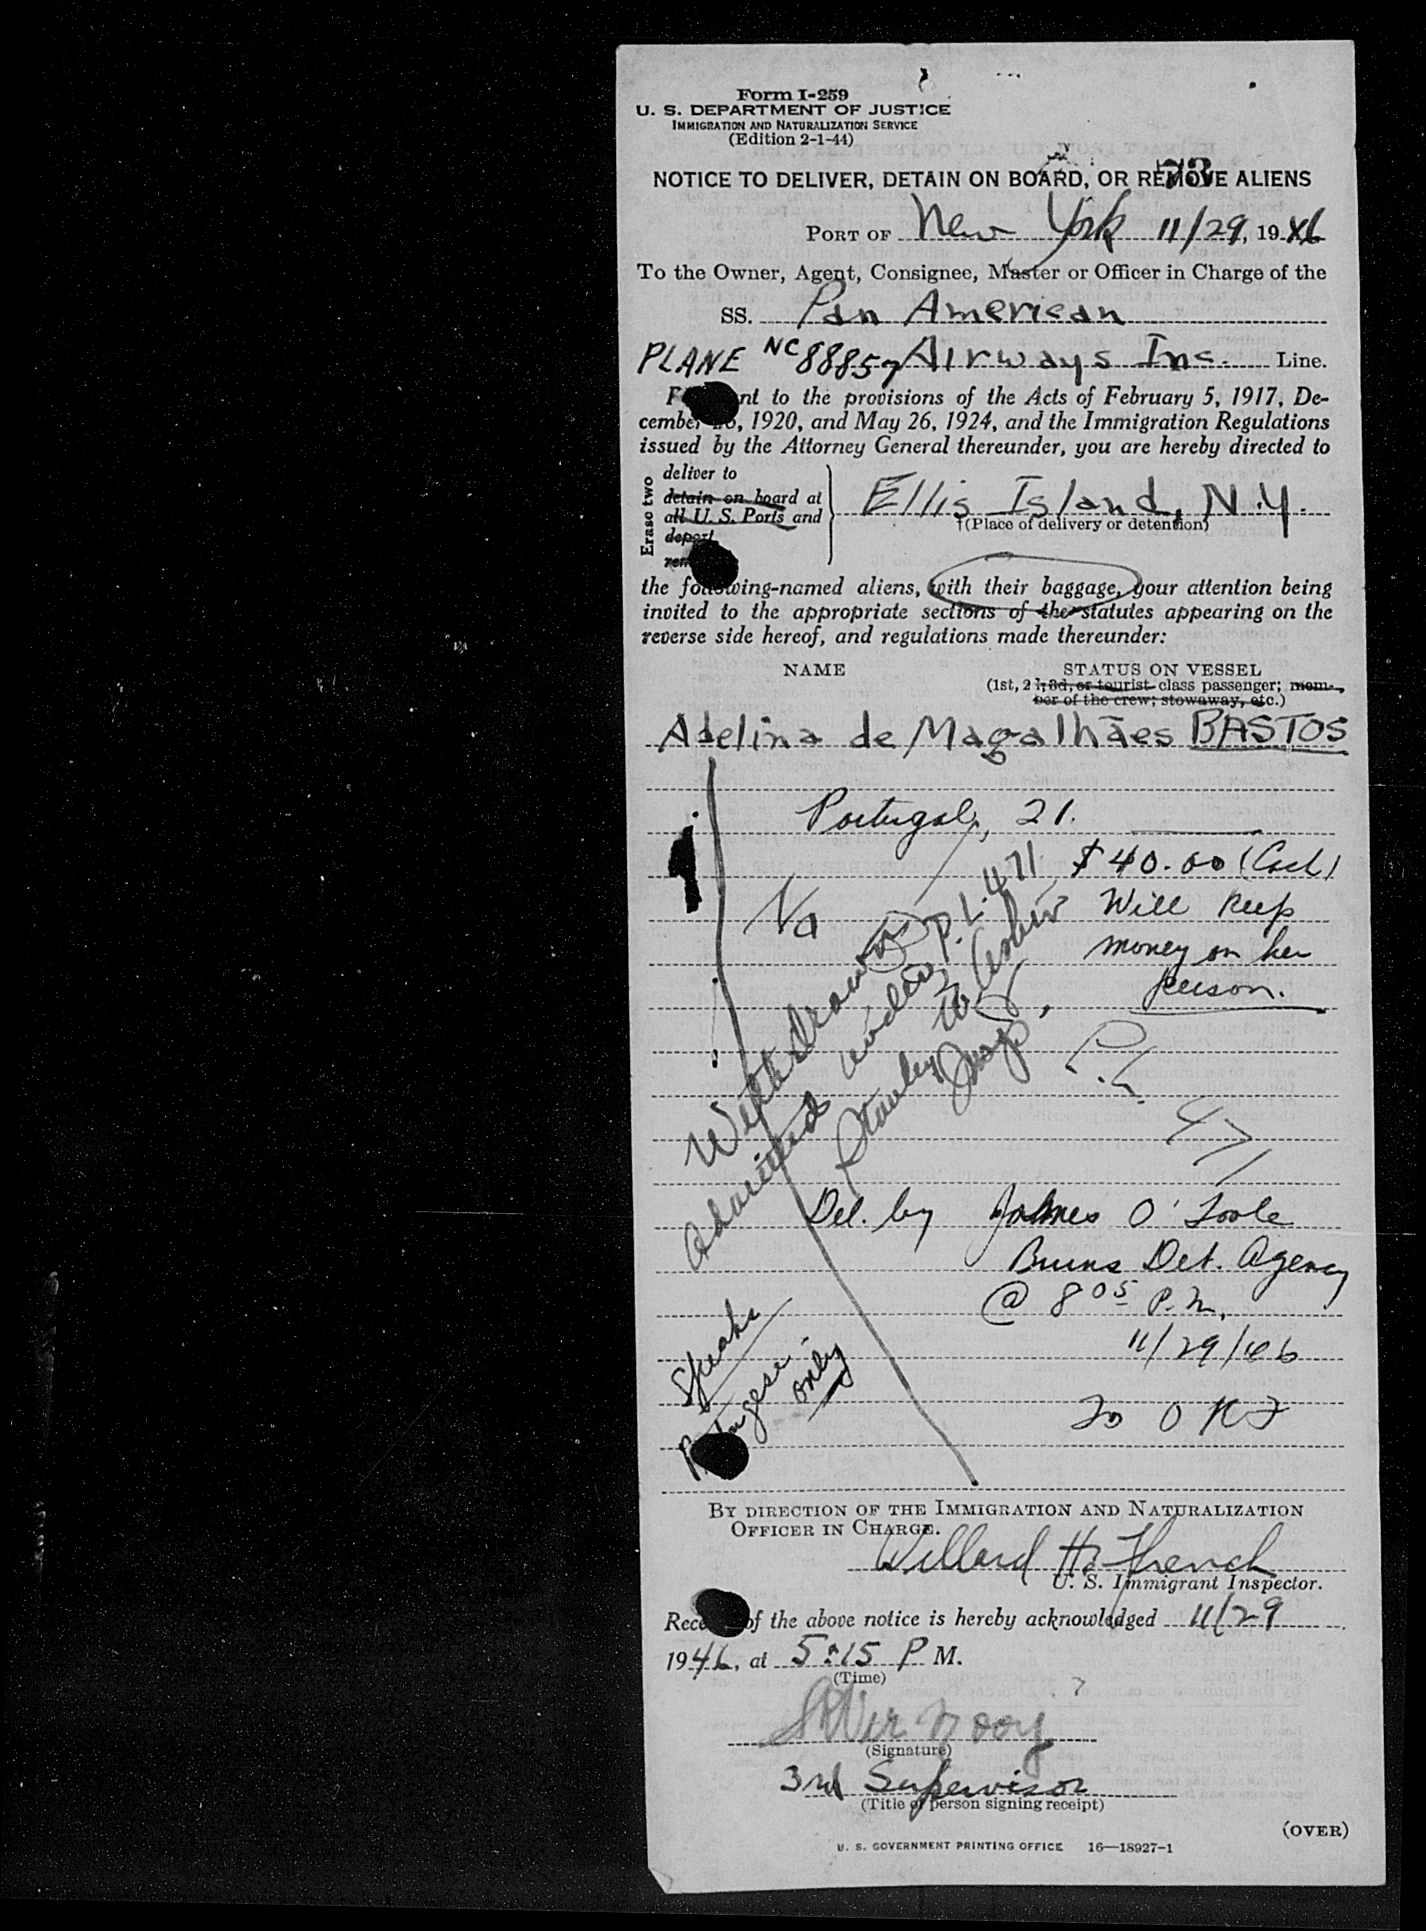 Form I-259
U. S. DEPARTMENT OF JUSTICE
IMMIGRATION AND NATURALIZATION SERVICE
(Edition 2-1-44)
73
NOTICE TO DELIVER, DETAIN ON BOARD, OR REMOVE ALIENS
PORT OF New York 11/29, 1946
To the Owner, Agent, Consignee, Master or Officer in Charge of the
SS. Pan American
PLANE NC 88857 Airways Inc. Line.
nt to the provisions of the Acts of February 5, 1917, De-
cember 26, 1920, and May 26, 1924, and the Immigration Regulations
issued by the Attorney General thereunder, you are hereby directed to
Erase two
deliver to
detain on board at
all U. S. Ports and
deport
Ellis Island, N.Y.
†(Place of delivery or detention)
the following-named aliens, with their baggage, your attention being
invited to the appropriate sections of the statutes appearing on the
reverse side hereof, and regulations made thereunder:
NAME STATUS ON VESSEL
(1st, 2 , 3d, or tourist class passenger; mem-
ber of the crew; stowaway, etc.)
Adelina de Magalhães BASTOS
Portugal, 21.
$40.00 (Cash)
Will keep
money on her
person.
No
Withdrawn
admitted under P.L. 471
Stanley
Insp.
P.L.
471
Del. by James O'Toole
Burns Det. Agency
@ 8 05 P.M.
11/29/46
Speaks
only
BY DIRECTION OF THE IMMIGRATION AND NATURALIZATION
OFFICER IN CHARGE.
Willard H. French
U. S. Immigrant Inspector.
of the above notice is hereby acknowledged 11/29
1946, at 5:15 P M.
(Time)
(Signature)
3rd Supervisor
(Title of person signing receipt)
(OVER)
U. S. GOVERNMENT PRINTING OFFICE 16—18927-1